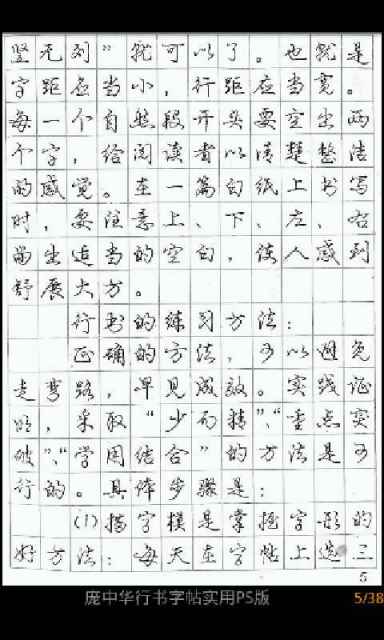 竖无列”就可以了。也就是
字距应当小，行距应当宽。
每一个自然段开头要空出两
个字，给阅读者以清楚整洁
的感觉。在一篇白纸上书写
时，要注意上、下、左、右
留出适当的空白，使人感到
舒展大方。
行书的练习方法：
正确的方法，可以避免
走弯路，早见成效。实践证
明，采取“少而精”、“重点突
破”、“学用结合”的方法是可
行的。具体步骤是：
(1)描字模是掌握字形的
好方法：每天在字帖上选三
5
庞中华行书字帖实用PS版
5/38